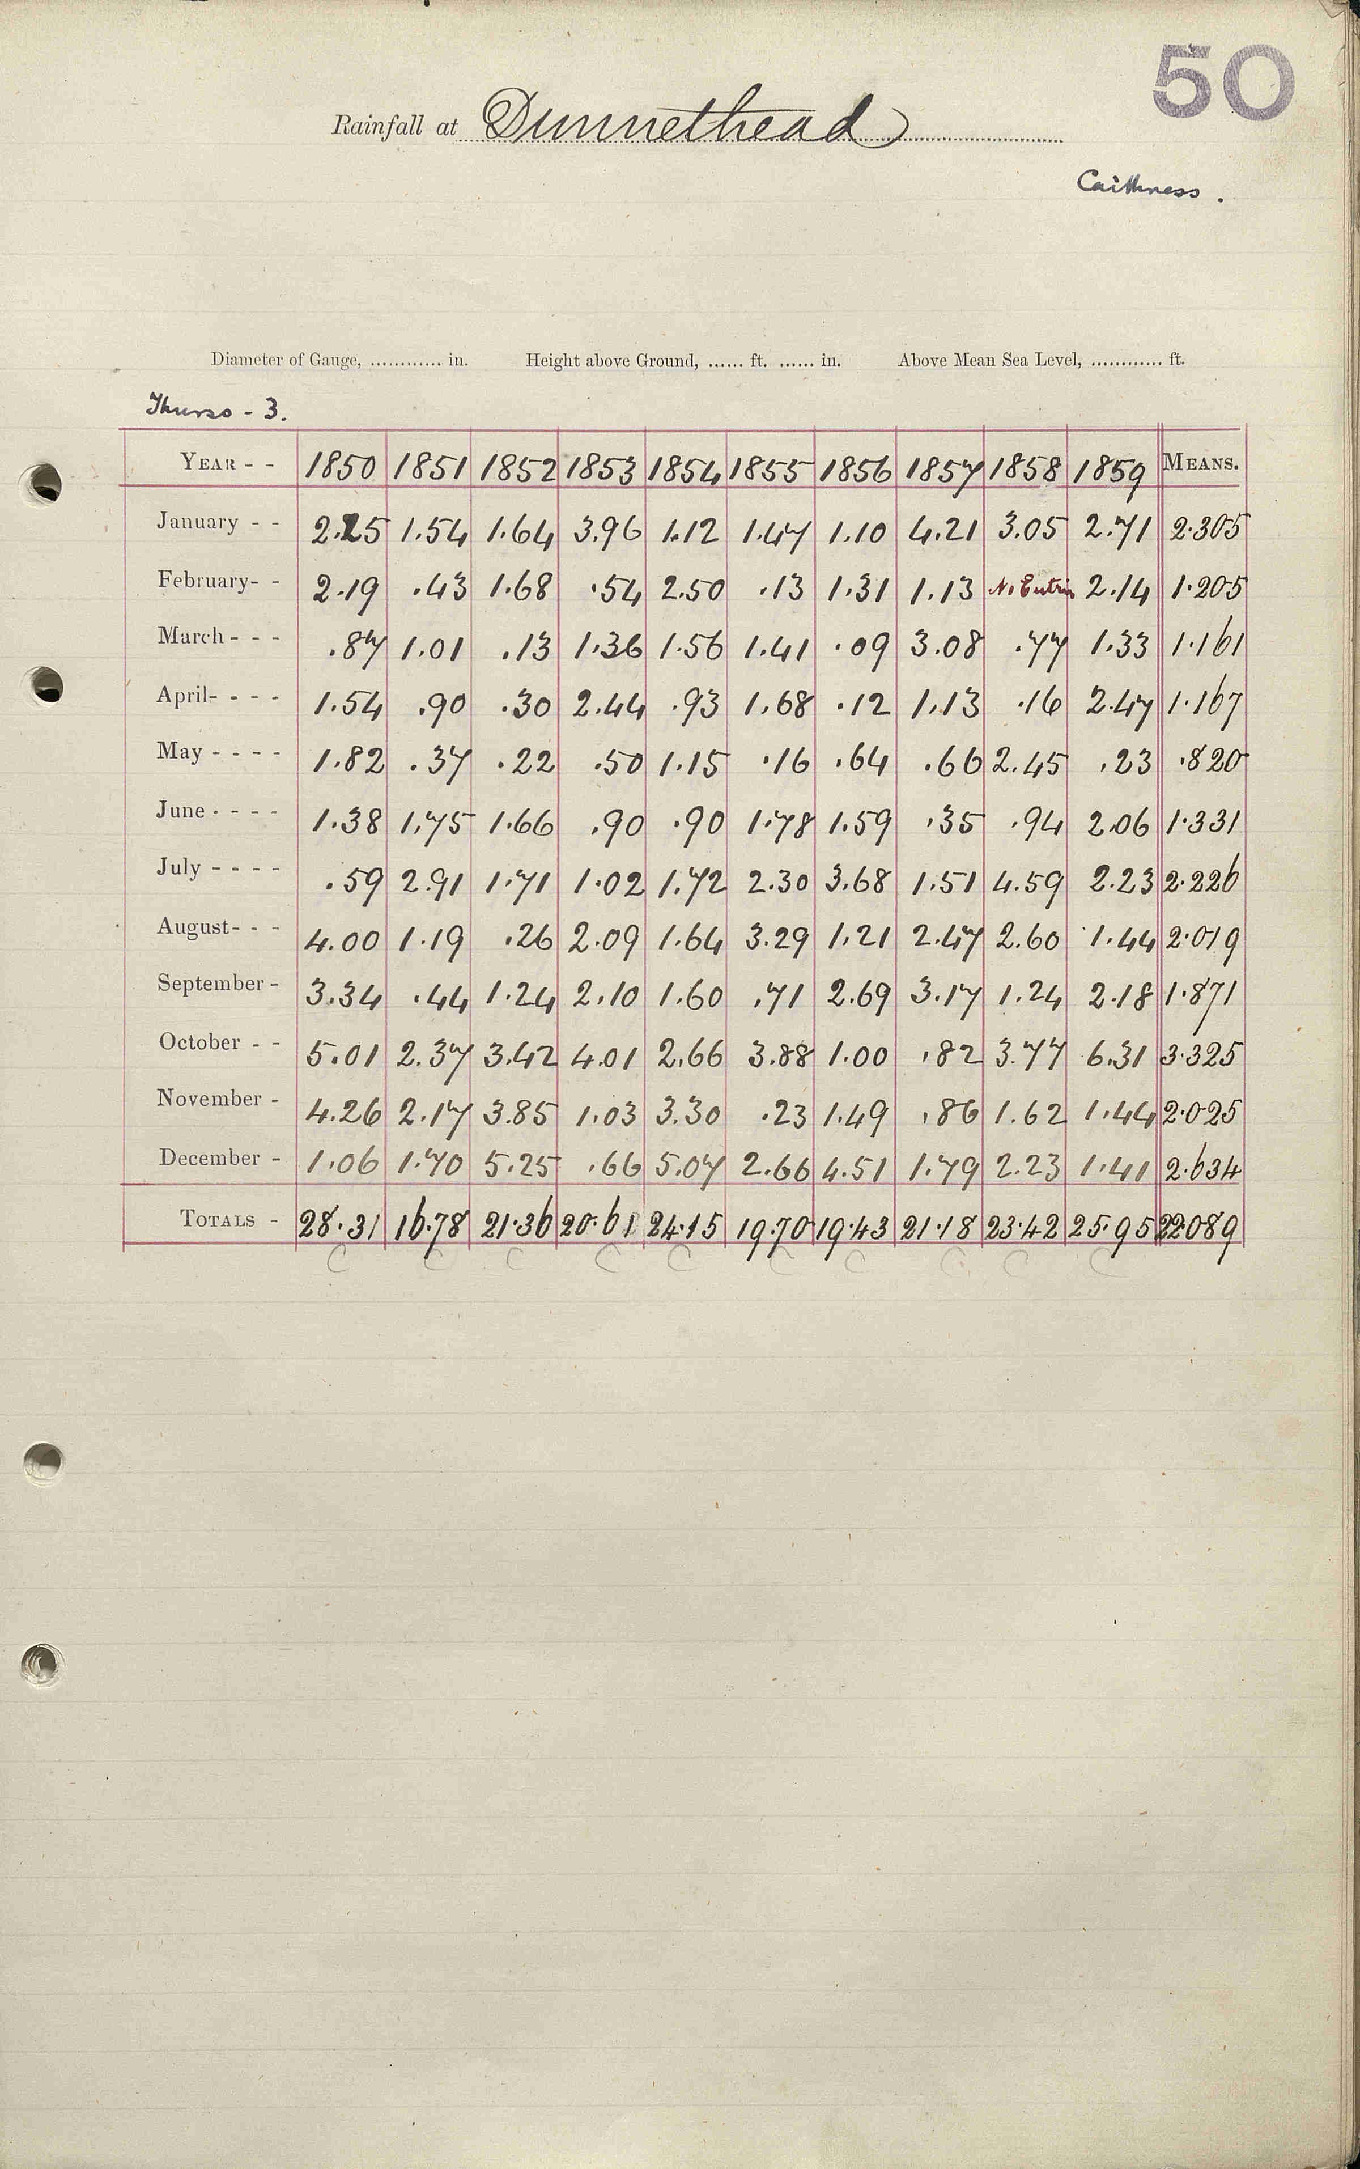 50
Rainfall at Dunnethead
Caithness.
Diameter of Gauge, ............ in. Height above Ground, ...... ft. ...... in. Above Mean Sea Level, ............ ft.
Thurso - 3.
YEAR - - 1850 1851 1852 1853 1854 1855 1856 1857 1858 1859 MEANS.
January - - 2.25 1.54 1.64 3.96 1.12 1.47 1.10 4.21 3.05 2.71 2.305
February- - 2.19 .43 1.68 .54 2.50 .13 1.31 1.13 No Entries 2.14 1.205
March - - - .87 1.01 .13 1.36 1.56 1.41 .09 3.08 .77 1.33 1.161
April- - - - 1.54 .90 .30 2.44 .93 1.68 .12 1.13 .16 2.47 1.167
May - - - - 1.82 .37 .22 .50 1.15 .16 .64 .66 2.45 .23 .820
June - - - - 1.38 1.75 1.66 .90 .90 1.78 1.59 .35 .94 2.06 1.331
July - - - - .59 2.91 1.71 1.02 1.72 2.30 3.68 1.51 4.59 2.23 2.226
August- - - 4.00 1.19 .26 2.09 1.64 3.29 1.21 2.47 2.60 1.44 2.019
September - 3.34 .44 1.24 2.10 1.60 .71 2.69 3.17 1.24 2.18 1.871
October - - 5.01 2.37 3.42 4.01 2.66 3.88 1.00 .82 3.77 6.31 3.325
November - 4.26 2.17 3.85 1.03 3.30 .23 1.49 .86 1.62 1.44 2.025
December - 1.06 1.70 5.25 .66 5.07 2.66 4.51 1.79 2.23 1.41 2.634
TOTALS - 28.31 16.78 21.36 20.61 24.15 19.70 19.43 21.18 23.42 25.95 22.089
C C C C C C C C C C